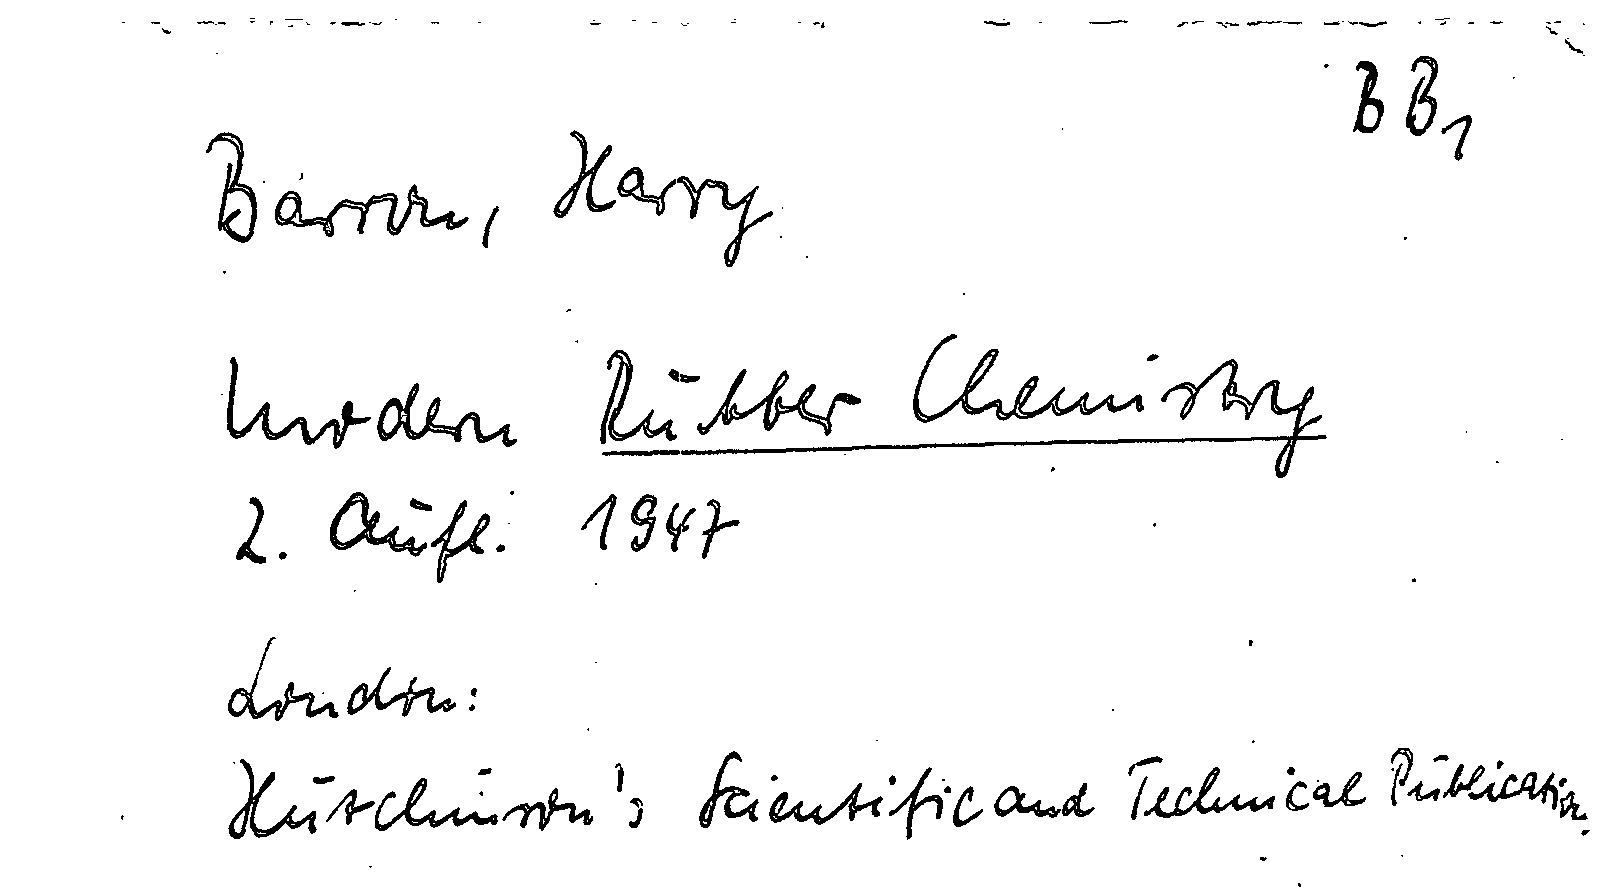 BB1
Barron, Harry
Modern Rubber Chemistry
2. Aufl. 1947
London:
Hutchinson's Scientific and Technical Publication